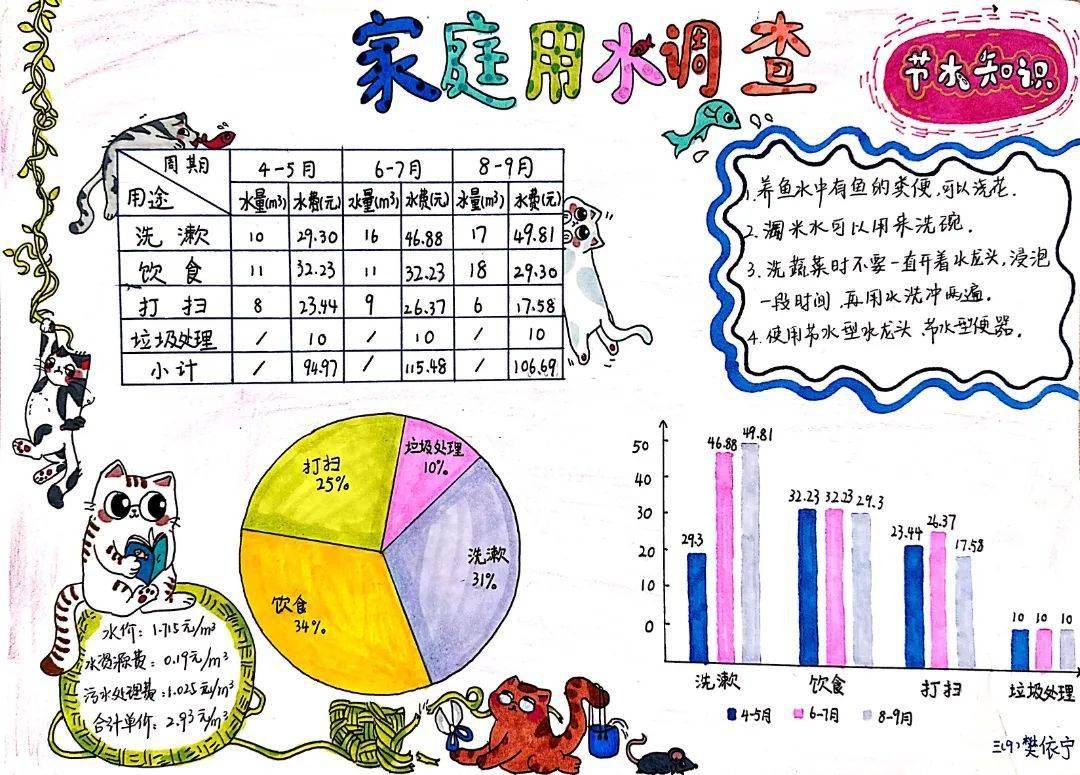 家庭用水调查
节水知识
周期 4-5月 6-7月 8-9月
用途 水量(m³) 水费(元) 水量(m³) 水费(元) 水量(m³) 水费(元)
洗漱 10 29.30 16 46.88 17 49.81
饮食 11 32.23 11 32.23 18 29.30
打扫 8 23.44 9 26.37 6 17.58
垃圾处理 / 10 / 10 / 10
小计 / 94.97 / 115.48 / 106.69
1.养鱼水中有鱼的粪便,可以浇花.
2.淘米水可以用来洗碗.
3.洗蔬菜时不要一直开着水龙头,浸泡
一段时间,再用水洗冲两遍。
4.使用节水型水龙头、节水型便器.
打扫
25%
垃圾处理
10%
洗漱
31%
饮食
34%
水价:1.715元/m³
水资源费:0.19元/m³
污水处理费:1.025元/m³
合计单价:2.93元/m³
50
40
30
20
10
0
29.3 46.88 49.81
32.23 32.23 29.3
23.44 26.37 17.58
10 10 10
洗漱 饮食 打扫 垃圾处理
4-5月 6-7月 8-9月
三(9)樊依宁